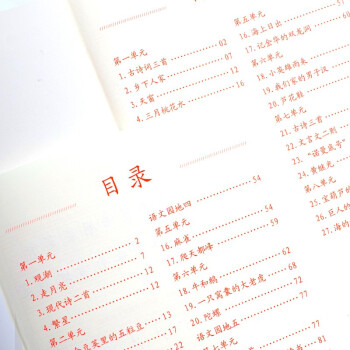 第一单元
1. 古诗词三首 02
2. 乡下人家 07
3. 天窗 12
4. 三月桃花水 16
第五单元 51
16. 海上日出
17. 记金华的双龙洞 60
第六单元
18. 小英雄雨来
19. 我们家的男子汉
20. 芦花鞋
第七单元
21. 古诗三首
22. 文言文二则
23. “诺曼底号”
24. 黄继光
第八单元
25. 宝葫芦的
26. 巨人的
27. 海的
目录
第一单元
1. 观潮 2
2. 走月亮 7
3. 现代诗二首 12
4. 繁星 12
第二单元
豆荚里的五粒豆 13
17
语文园地四 54
第五单元 54
16. 麻雀
17. 爬天都峰 59
第六单元
18. 牛和鹅 62
19. 一只窝囊的大老虎 68
20. 陀螺 72
语文园地五 77
77